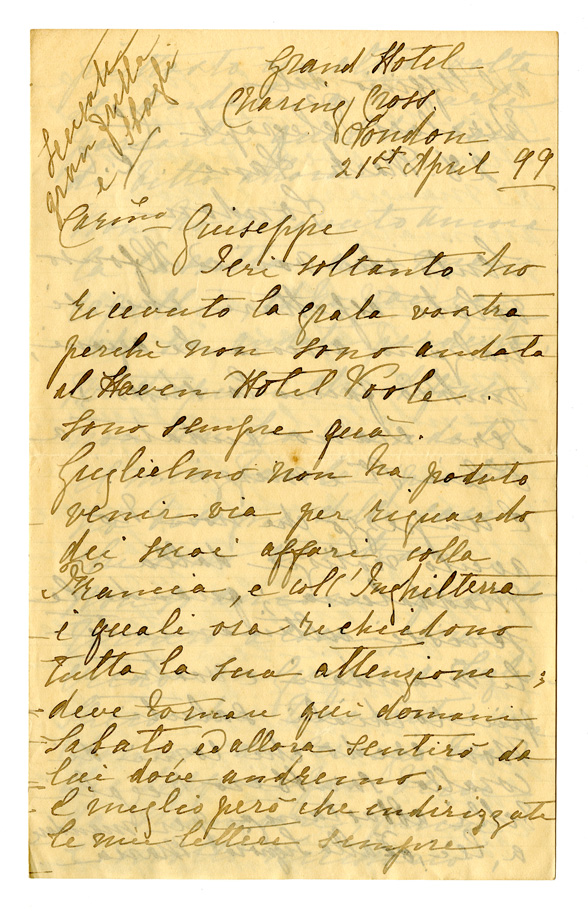 Scusate
gran fretta
e sbagli
Grand Hotel
Charing Cross
London
21st April 99
Carino Giuseppe
Ieri soltanto ho
ricevuto la grata vostra
perchè non sono andata
al Haven Hotel Poole.
Sono sempre quà.
Guglielmo non ha potuto
venir via per riguardo
dei suoi affari colla
Francia, e coll'Inghilterra
i quali ora richiedono
tutta la sua attenzione;
deve tornare qui domani
Sabato ed allora sentirò da
lui dove andremo.
È meglio però che indirizzate
le mie lettere sempre